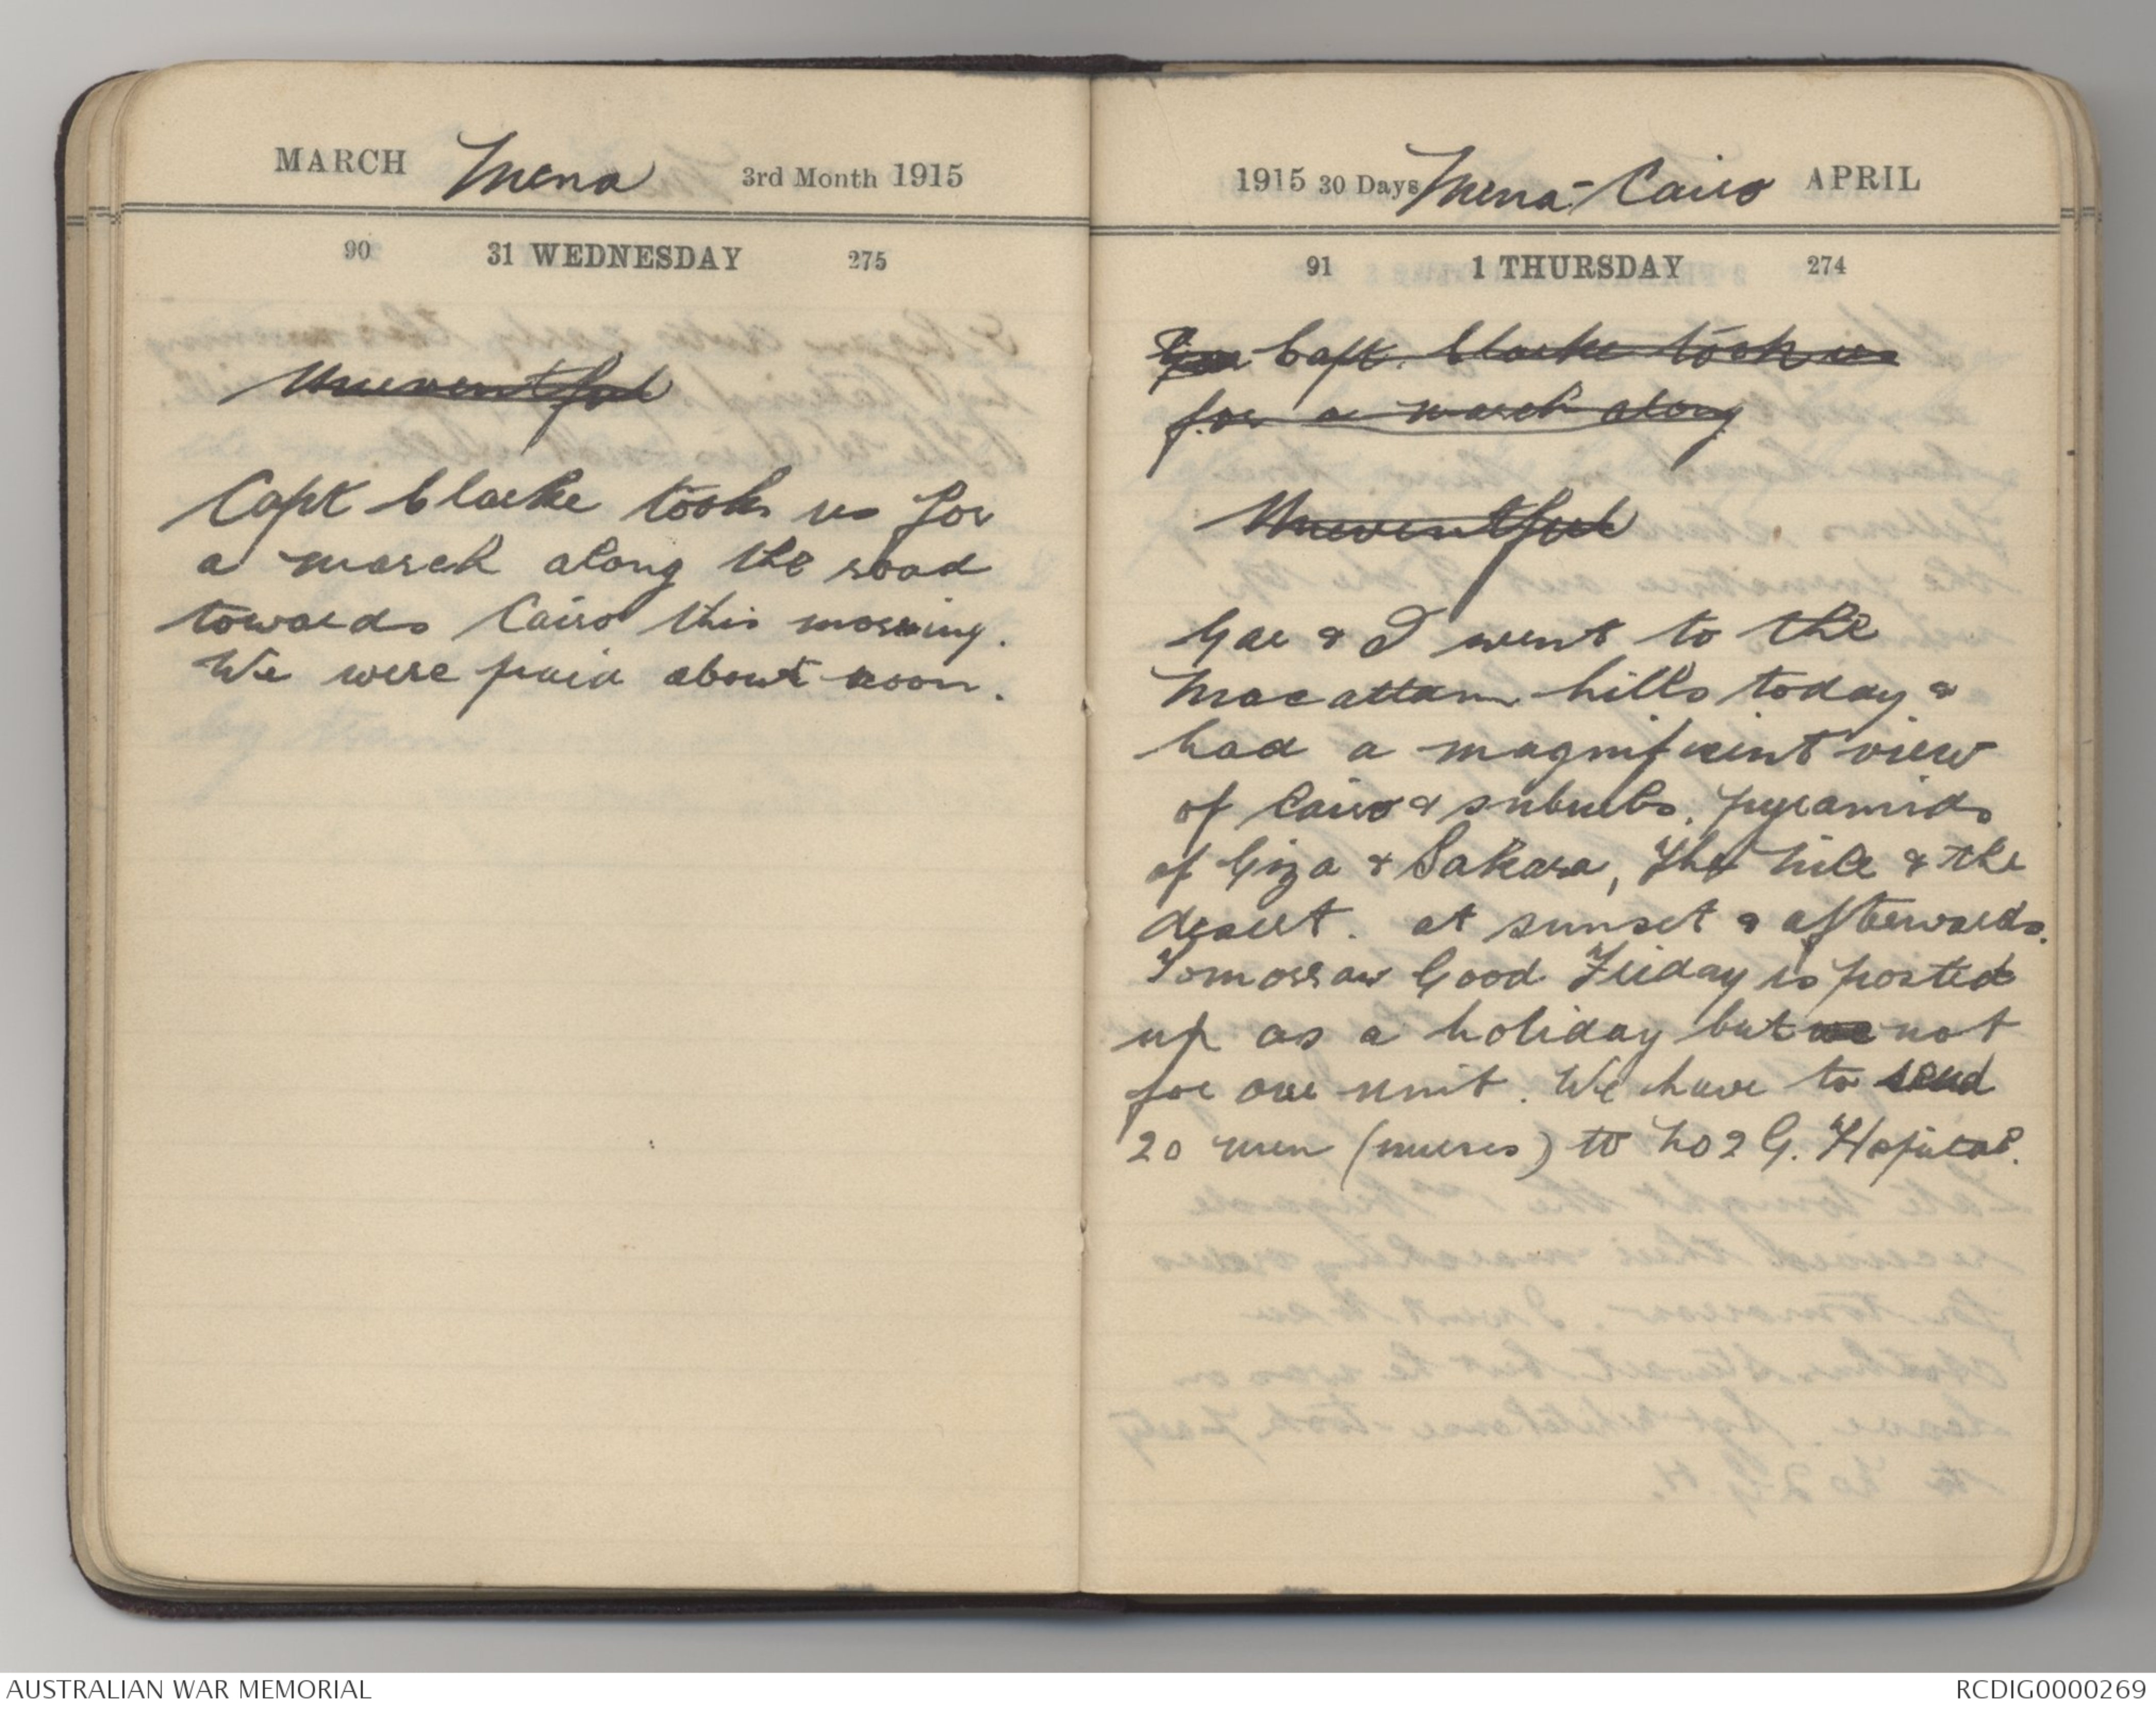 MARCH Mena 3rd Month 1915
90 31 WEDNESDAY 275
Uneventful
Capt Clarke took us for
a march along the road
towards Cairo this morning.
We were paid about noon.
1915 30 Days Mena-Cairo APRIL
91 1 THURSDAY 274
Capt. Clarke took us
for a march along
Uneventful
& I went to the
Macattam hills today &
had a magnificint view
of Cairo & suburbs, pyramids
of Giza & Sakara, The Nile & the
desert. at sunset & afterwards.
Tomorrow Good Friday is posted
up as a holiday but we not
for our unit. We have to send
20 men (nurses) to No 2 G. Hospital.
AUSTRALIAN WAR MEMORIAL
RCDIG0000269